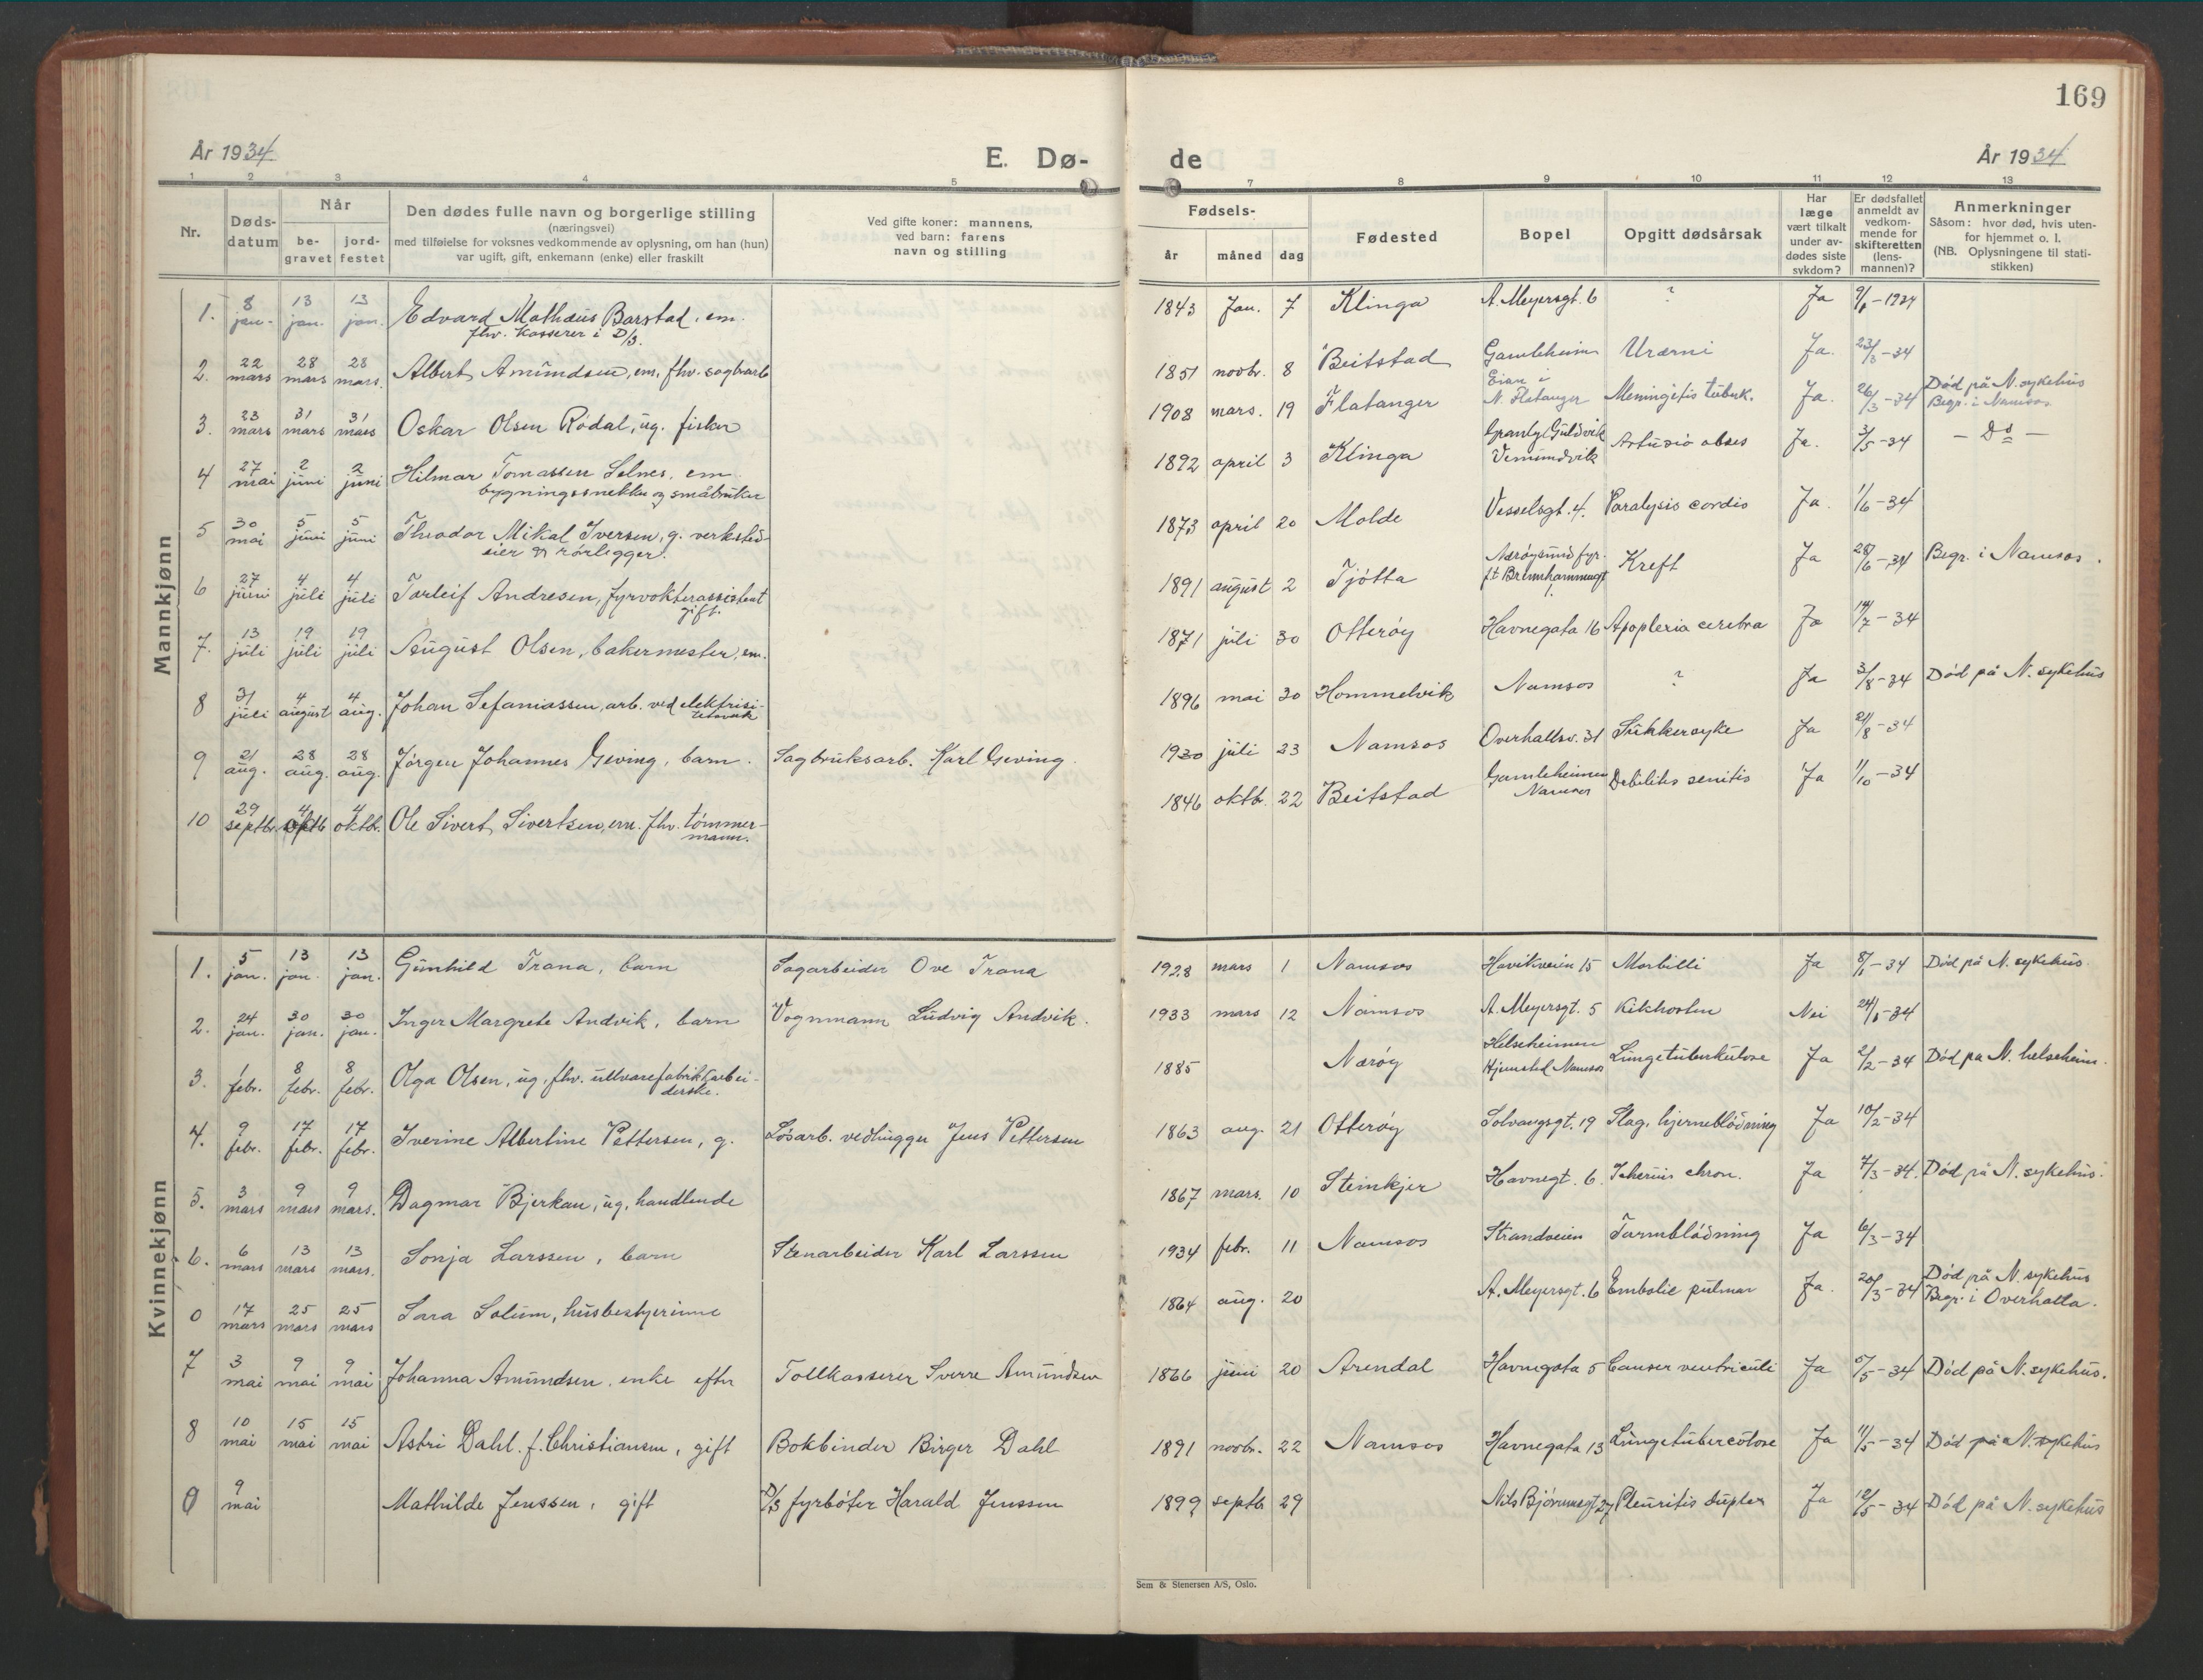 169
År 1934
E. Dø-
de
År 1934
1 2 3 4 5
7 8 9 10 11 12 13
Nr.
Døds-
datum
Når
be-
gravet
jord-
festet
Den dødes fulle navn og borgerlige stilling
(næringsvei)
med tilføielse for voksnes vedkommende av oplysning, om han (hun)
var ugift, gift, enkemann (enke) eller fraskilt
Ved gifte koner: mannens,
ved barn: farens
navn og stilling
Fødsels-
år måned dag
Fødested
Bopel
Opgitt dødsårsak
Har
læge
vært tilkalt
under av-
dødes siste
sykdom?
Er dødsfallet
anmeldt av
vedkom-
mende for
skifteretten
(lens-
mannen)?
Anmerkninger
Såsom: hvor død, hvis uten-
for hjemmet o. l.
(NB. Oplysningene til stati-
stikken)
Mannkjønn
1. 8 jan. 13 jan. 13 jan. Edvard Mathæus Barstad, em.
fhv. kasserer i D/S. 1843 Jan. 7 Klinga A. Meyersgt. 6 ? Ja 9/1-1934
2. 22 mars 28 mars 28 mars. Albert Amundsen, em, fhv. sagbrarb 1851 novbr. 8 Beitstad Gamleheim Uræmi Ja. 23/3-34
3. 23 mars 31 mars 31 mars Oskar Olsen Rødal, ug. fisker 1908 mars. 19 Flatanger
N. Flatanger Meningitis tuberk. Ja. 26/3-34 Død på N. sykehus
Begr. i Namsos
4 27 mai 2 juni 2 juni Hilmar Tomassen Selnes, em
bygningssnekker og småbruker 1892 april 3 Klinga Guldvik
Vemundvik Ja. 3/5-34 - Do -
5 30 mai 5 juni 5 juni Theodor Mikal Iversen, g. verksted-
eier og rørlegger. 1873 april 20 Molde Vesselsgt. 4. Paralysis cordis Ja. 1/6-34
6 27 juni 4 juli 4 juli Torleif Andresen, fyrvokterassistent
gift. 1891 august 2 Tjøtta Nærøysund fyr. Kreft Ja 28/6-34 Begr. i Namsos.
7. 13 juli 19 juli 19 juli August Olsen, bakermester, em. 1871 juli 30 Otterøy Havnegata 16 Apoplexia cerebra Ja 14/7-34
8 31 juli 4 august 4 aug. Johan Sefaniassen, arb. ved elektrisi-
tetsverk 1896 mai 30 Hommelvik Namsos ? Ja 3/8-34 Død på N. sykehus
9 21 aug. 28 aug. 28 aug. Jørgen Johannes Geving, barn. Sagbruksarb. Karl Geving. 1930 juli 23 Namsos Overhallsv. 31 Sukkersyke Ja 21/8-34
10 29 septbr. 4 oktb 4 oktbr. Ole Sivert Sivertsen, em. fhv. tømmer-
mann. 1846 oktb. 22 Beitstad Gamleheimen
Namsos Debilitas senilis Ja 1/10-34
Kvinnekjønn
1. 5 jan. 13 jan. 13 jan. Gunhild Trana, barn Sagarbeider Ove Trana 1928 mars 1 Namsos Havikveien 15 Morbilli Ja 8/1-34 Død på N. sykehus.
2. 24 jan. 30 jan. 30 jan. Inger Margrete Andvik, barn Vognmann Ludvig Andvik. 1933 mars 12 Namsos A. Meyersgt. 5 Kikhosten Nei 24/1-34
3. 1 febr. 8 febr. 8 febr. Olga Olsen, ug, fhv. ullvarefabrikkarbei-
derske. 1885 Nærøy Helseheimen
Hjemsted Namsos Lungetuberkulose Ja 2/2-34 Død på N. helseheim.
4. 9 febr. 17 febr. 17 febr. Iverine Albertine Pettersen, g. Løsarb. vedhugger Jens Pettersen 1863 aug. 21 Otterøy Solvangsgt. 19 Slag, hjerneblødning Ja 10/2-34
5. 3 mars 9 mars 9 mars. Dagmar Bjerkan, ug, handlende 1867 mars. 10 Steinkjer Havnegt. 6. Icherus chron. Ja 7/3-34. Død på N. sykehus.
6. 6 mars 13 mars 13 mars. Sonja Larssen, barn Stenarbeider Karl Larssen 1934 febr. 11 Namsos Strandveien Tarmblødning Ja 6/3-34
0 17 mars 25 mars 25 mars Sara Solum, husbestyrerinne 1864 aug. 20 A. Meyersgt. 6 Embolie pulmon Ja. 20/3-34 Død på N. sykehus
Begr. i Overhalla.
7 3 mai 9 mai 9 mai Johanna Amundsen, enke efter Tollkasserer Sverre Amundsen 1866 juni 20 Arendal Havnegata 5 Cancer ventriculi Ja 5/5-34 Død på N. sykehus.
8 10 mai 15 mai 15 mai Astri Dahl. f. Christiansen, gift Bokbinder Birger Dahl 1891 novbr. 22 Namsos Havnegata 13 Lungetuberculose Ja 11/5-34 Død på N. sykehus
0 9 mai Mathilde Jenssen, gift D/S fyrbøter Harald Jenssen 1899 septb 29 Nils Bjørumsgt 27 Pleuritis duplex Ja 12/5-34 Død på N. sykehus
Sem & Stenersen A/S, Oslo.